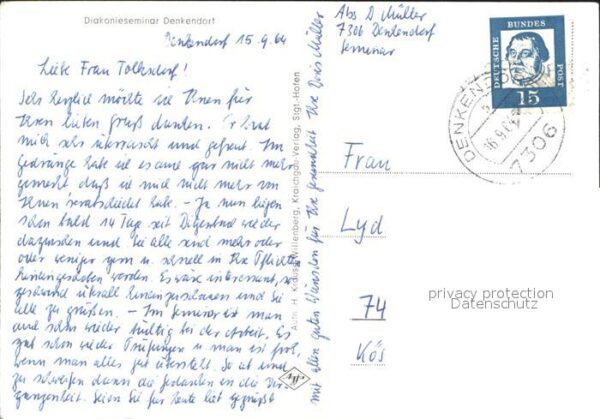 Diakonieseminar Denkendorf
Denkendorf 15.9.64
Liebe Frau Tolksdorf!
Sehr herzlich möchte ich Ihnen für
Ihren lieben Gruß danken. Er hat
mich sehr überrascht und gefreut. Im
Gedränge habe ich es ganz gar nicht mehr
gemerkt, daß ich mich nicht mehr von
Ihnen verabschiedet habe. – Ja nun liegen
schon bald 14 Tage seit wieder
dazwischen und Sie alle sind mehr oder
oder weniger gern u. schnell in Ihre Pflichten
hineingeschoben worden. Es wäre interessant,
geschwind überall hineinzuschauen und Sie
alle zu grüßen. – Im Seminar ist man
auch schon wieder tüchtig bei der Arbeit. Es
gab schon wieder Prüfungen u. man ist froh,
wenn man alles gut übersteht. So ab und
zu schweifen dann die Gedanken in die Ver-
gangenheit. Seien Sie für heute lieb gegrüßt
mit allen guten Wünschen für Ihre Gesundheit Ihre Doris Müller
Aufn. H. Krauss-Willenberg, Kraichgau-Verlag, Stgt.-Hofen
Agfa
Abs D Müller
7306 Denkendorf
Seminar
DEUTSCHE BUNDES POST
15
DENKENDORF
16.9.64
7306
Frau
Lyd
74
Kös
privacy protection
Datenschutz